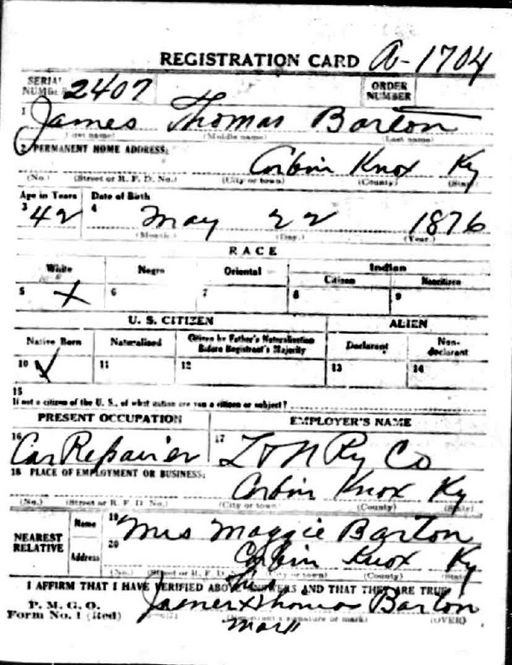 REGISTRATION CARD A-1704
SERIAL NUMBER 2407 ORDER NUMBER
1 James Thomas Barton
(First name) (Middle name) (Last name)
2 PERMANENT HOME ADDRESS:
Corbin Knox Ky
(No.) (Street or R. F. D. No.) (City or town) (County) (State)
Age in Years Date of Birth
3 42 4 May 22 1876
(Month.) (Day.) (Year.)
RACE
White Negro Oriental Indian
Citizen Noncitizen
5 X 6 7 8 9
U. S. CITIZEN ALIEN
Native Born Naturalized Citizen by Father's Naturalization Before Registrant's Majority Declarant Non-declarant
10 ✓ 11 12 13 14
15
If not a citizen of the U. S., of what nation are you a citizen or subject?
PRESENT OCCUPATION EMPLOYER'S NAME
16 Car Repair'er 17 L & N Ry Co
18 PLACE OF EMPLOYMENT OR BUSINESS:
Corbin Knox Ky
(No.) (Street or R. F. D. No.) (City or town) (County) (State)
NEAREST RELATIVE Name 19 Mrs Maggie Barton
Address 20 Corbin Knox Ky
(No.) (Street or R. F. D. No.) (City or town) (County) (State)
I AFFIRM THAT I HAVE VERIFIED ABOVE ANSWERS AND THAT THEY ARE TRUE
P. M. G. O.
Form No. 1 (Red)
his
James X Thomas Barton
mark
(Registrant's signature or mark) (OVER)